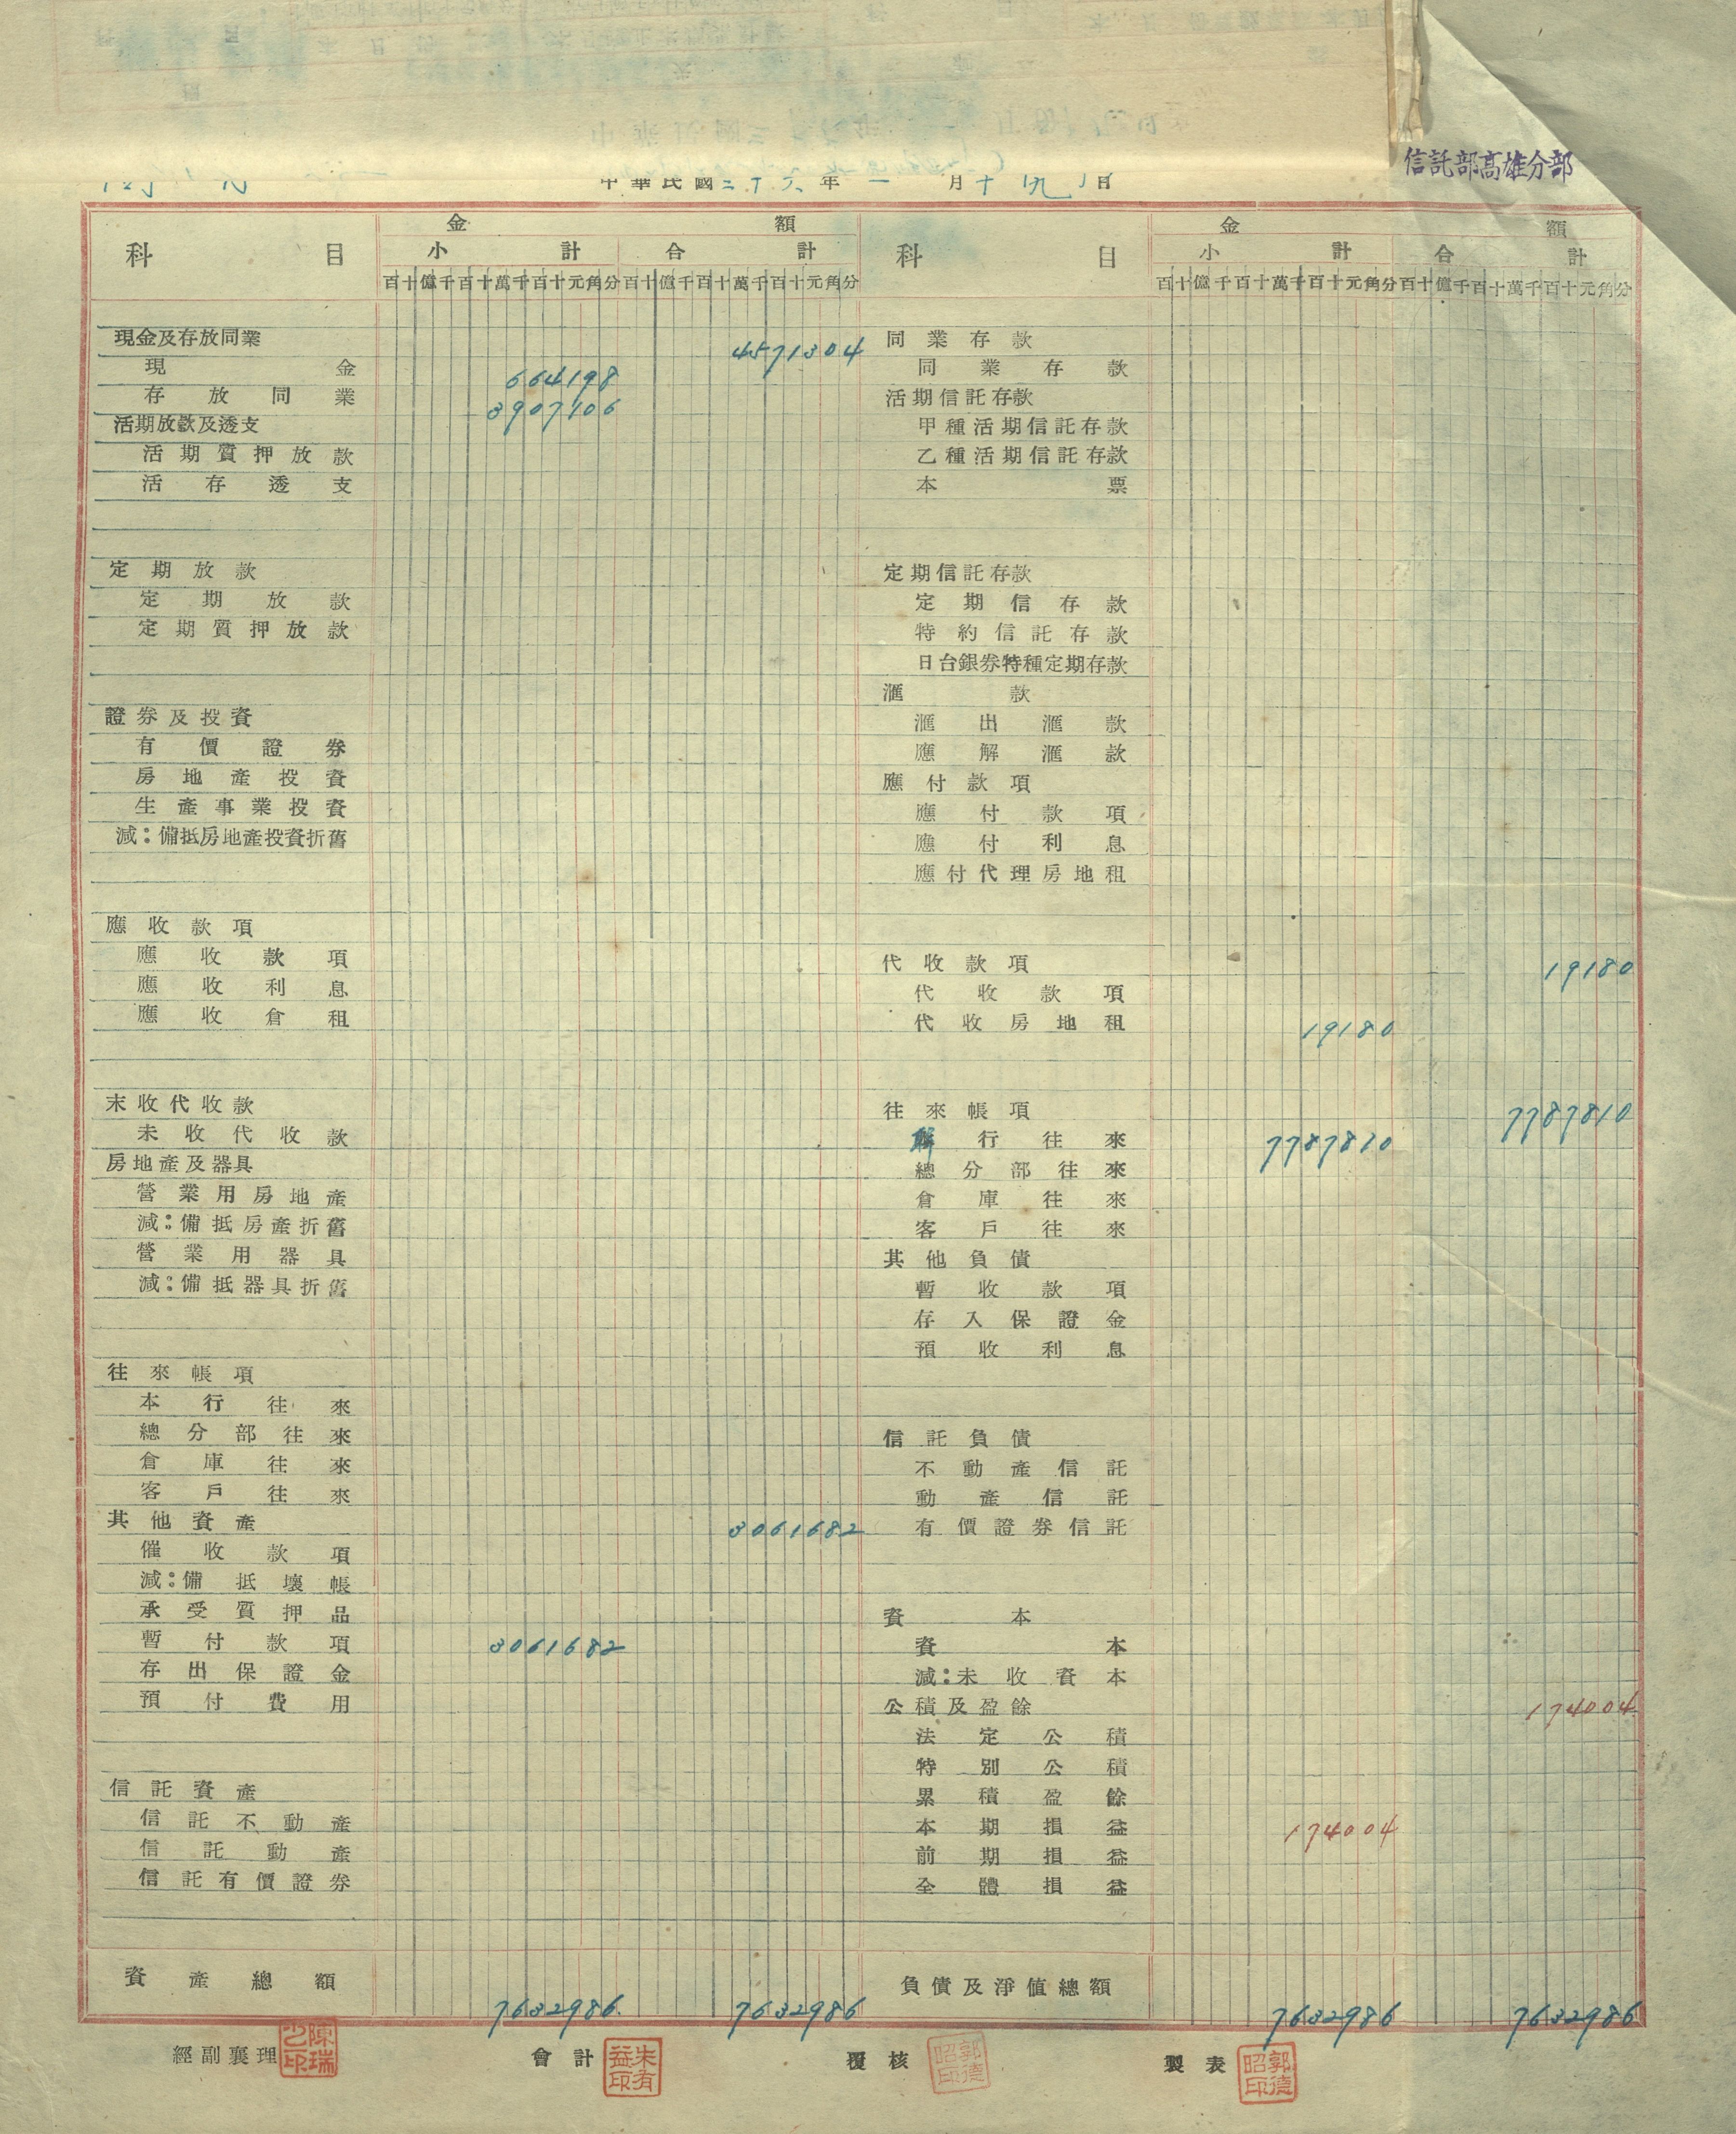 信託部高雄分部
中華民國三十六年一月十九日
科目 金額 科目 金額
小計 合計 小計 合計
百十億千百十萬千百十元角分 百十億千百十萬千百十元角分 百十億千百十萬千百十元角分 百十億千百十萬千百十元角分
現金及存放同業 4571304 同業存款
現金 664198 同業存款
存放同業 3907106 活期信託存款
活期放款及透支 甲種活期信託存款
活期質押放款 乙種活期信託存款
活存透支 本票
定期放款 定期信託存款
定期放款 定期信存款
定期質押放款 特約信託存款
日台銀券特種定期存款
滙款
證券及投資 滙出滙款
有價證券 應解滙款
房地產投資 應付款項
生產事業投資 應付款項
減:備抵房地產投資折舊 應付利息
應付代理房地租
應收款項
應收款項 代收款項 19180
應收利息 代收款項
應收倉租 代收房地租 19180
未收代收款 往來帳項 7787810
未收代收款 聯行往來 7787810
房地產及器具 總分部往來
營業用房地產 倉庫往來
減:備抵房產折舊 客戶往來
營業用器具 其他負債
減:備抵器具折舊 暫收款項
存入保證金
預收利息
往來帳項
本行往來
總分部往來 信託負債
倉庫往來 不動產信託
客戶往來 動產信託
其他資產 3061682 有價證券信託
催收款項
減:備抵壞帳
承受質押品 資本
暫付款項 3061682 資本
存出保證金 減:未收資本
預付費用 公積及盈餘 174004
法定公積
特別公積
信託資產 累積盈餘
信託不動產 本期損益 174004
信託動產 前期損益
信託有價證券 全體損益
資產總額 7632986 7632986 負債及淨值總額 7632986 7632986
經副襄理 會計 朱有益印 覆核 郭德昭印 製表 郭德昭印